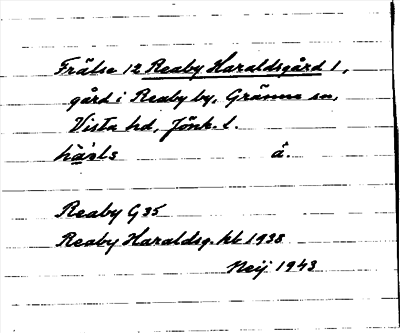 Frälse 12 Reaby Haraldsgård 1,
gård i Reaby by, Gränna sn,
Vista hd, Jönk. l.
å.
Reaby G 35
Reaby Haraldsg. kb 1938
Neij 1943